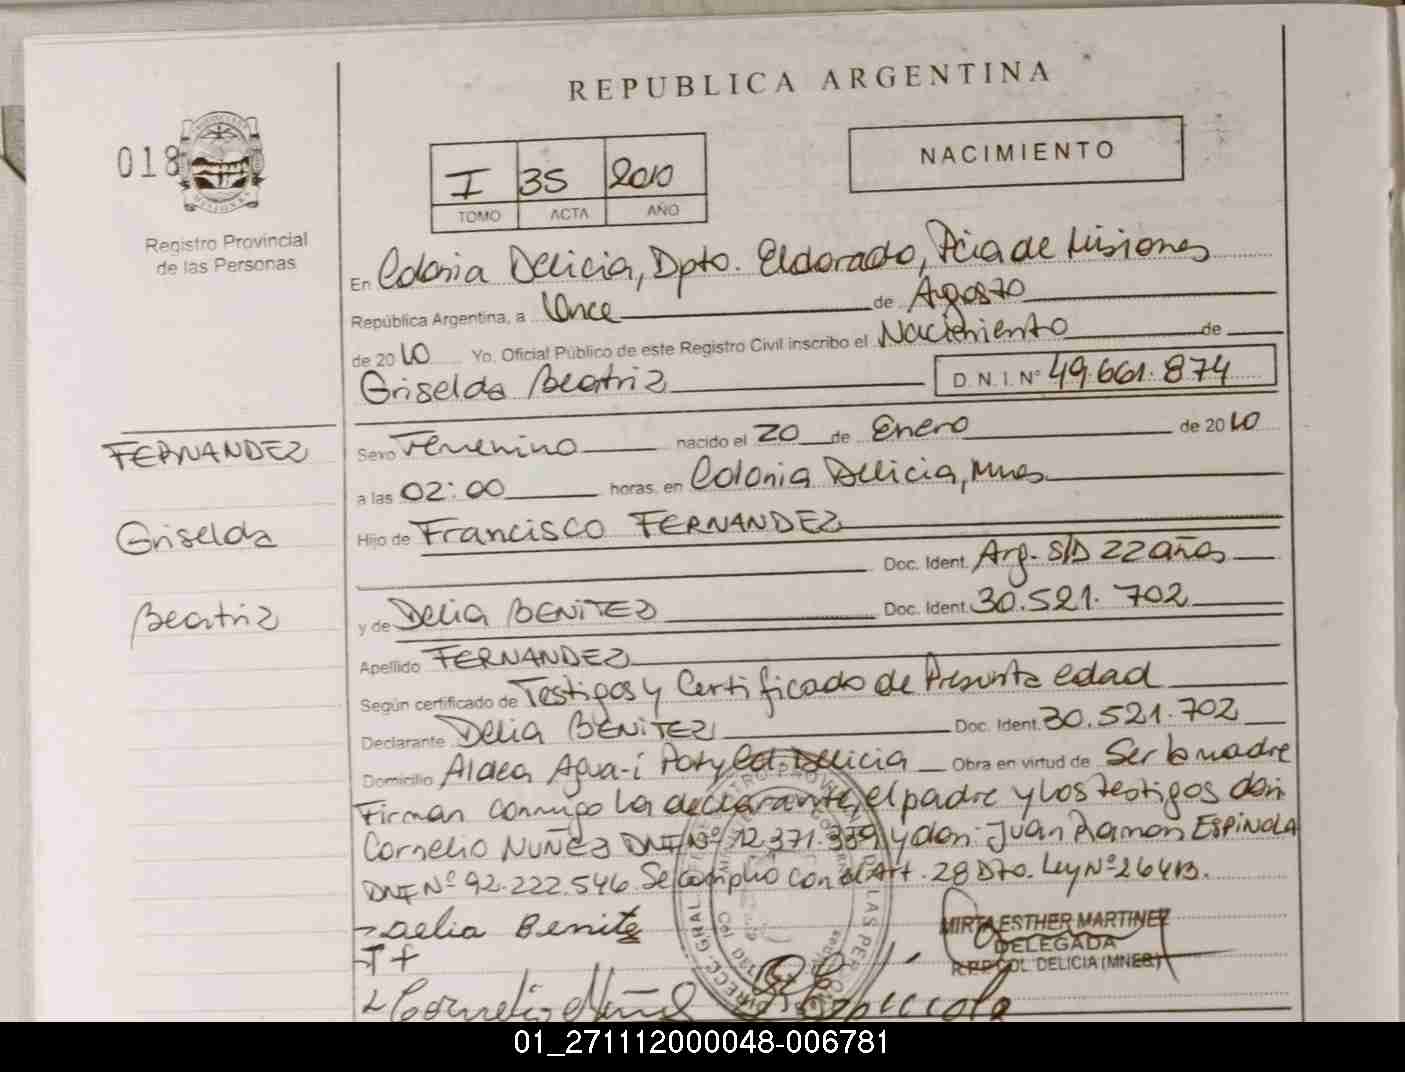 REPUBLICA ARGENTINA
018
Registro Provincial
de las Personas
I 35 2010
TOMO ACTA AÑO
NACIMIENTO
En Colonia Delicia, Dpto. Eldorado, Pcia de Misiones
República Argentina, a Once de Agosto
de 2010 Yo, Oficial Público de este Registro Civil inscribo el Nacimiento de
Griselda Beatriz D.N.I. Nº 49.661.874
FERNANDEZ
Griselda
Beatriz
Sexo Femenino nacido el 20 de Enero de 2010
a las 02:00 horas, en Colonia Delicia, Mnes
Hijo de Francisco FERNANDEZ
Doc. Ident. Arg. S/D 22 años
y de Delia BENITEZ Doc. Ident. 30.521.702
Apellido FERNANDEZ
Según certificado de Testigos y Certificado de Presunta edad
Declarante Delia BENITEZ Doc. Ident. 30.521.702
Domicilio Aldea Agua-i Poty Col. Delicia Obra en virtud de Ser la madre
Firman conmigo la declarante, el padre y los testigos don
Cornelio NUÑEZ DNI Nº 12.371.339 y don Juan Ramon ESPINOLA
DNI Nº 92.222.546. Se cumplio con el Art. 28 Dto. Ley Nº 26413.
Delia Benitez
MIRTA ESTHER MARTINEZ
DELEGADA
R.P.P COL. DELICIA (MNES)
Cornelio Nuñez
01_271112000048-006781